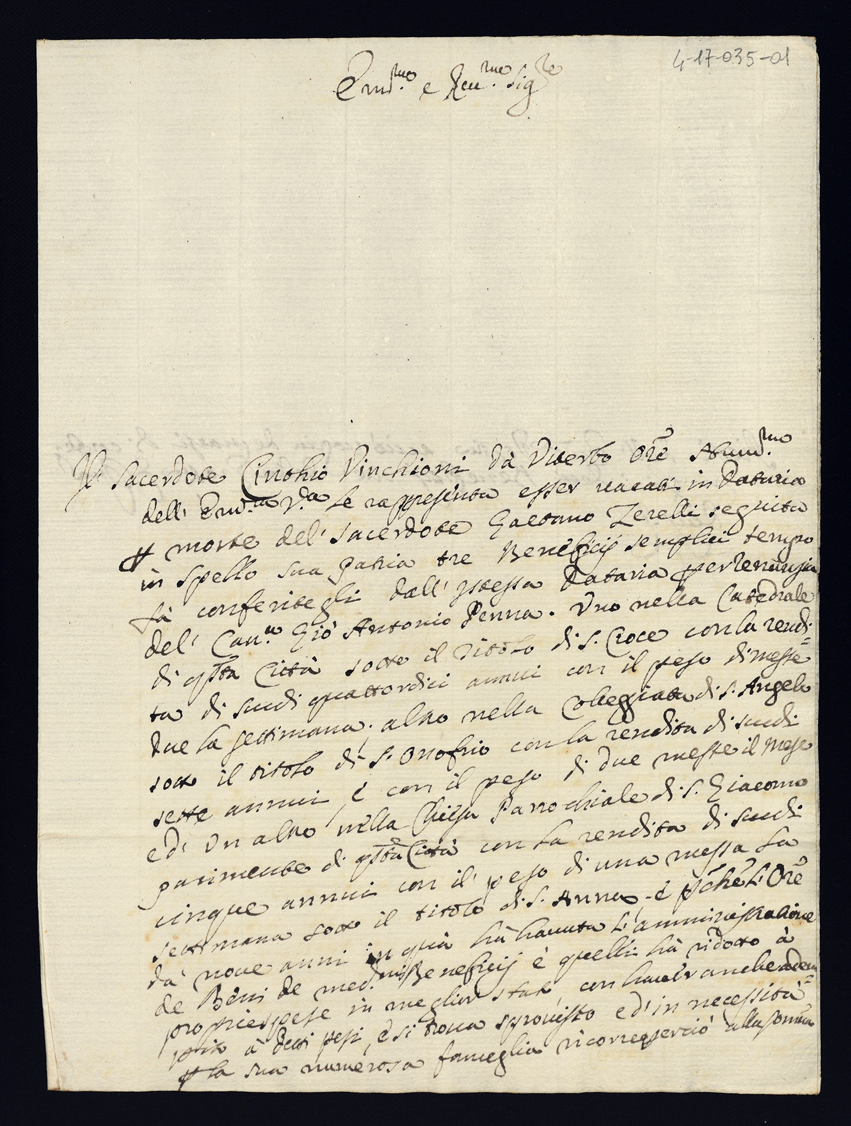 4-17-035-01
Em.mo e Reu.mo Sig.re
Il Sacerdote Cinthio Vinchioni da Viterbo Ore Hum.mo
dell' Em.za V.ra Le rappresenta esser uacati in Dataria
morte del' Sacerdote Gaetano Zerelli seguita
in Spello sua patria tre Beneficij semplici tempo
fà conferitegli dall' istessa Dataria per renunzia
del' Can.co Giò Antonio Penna. Vno nella Catedrale
di qsta Città sotto il titolo di S. Croce con la rendi=
ta di scudi quattordici annui con il peso di messe
due la settimana; altro nella Colleggiata di S. Angelo
sotto il titolo di S. Onofrio con la rendita di scudi
sette annui, è con il peso di due messe il mese
ed' Vn altro nella Chiesa Parrochiale di S. Giacomo
parimente di qsta Città con la rendita di scudi
cinque annui con il' peso di una messa la
settimana sotto il titolo di S. Anna. è pche L'Ore
da' noue anni in quà hà hauuta l'amministrazione
de Beni de med.mi Beneficij è quelli hà ridotto à
proprie spese in meglior stato con hauer anche adem=
pito à detti pesi, è si troua sprouisto ed' in necessità
la sua numerosa fameglia ricorre perciò alla somma